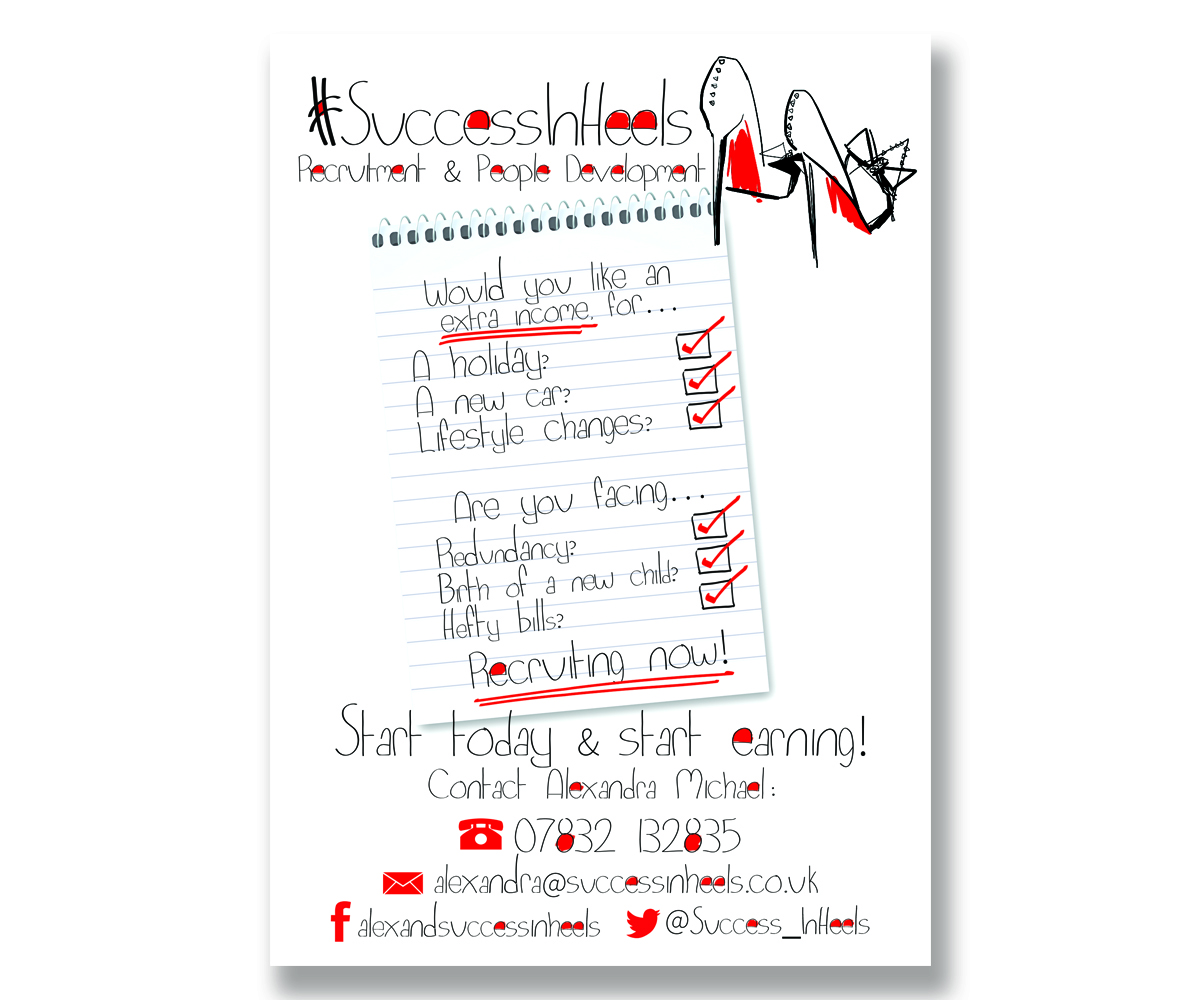 #SuccessInHeels
Recruitment & People Development
Would you like an
extra income, for...
A holiday?
A new car?
Lifestyle changes?
Are you facing...
Redundancy?
Birth of a new child?
Hefty bills?
Recruiting now!
Start today & start earning!
Contact Alexandra Michael:
07832 132835
alexandra@successinheels.co.uk
alexandsuccessinheels
@Success_InHeels